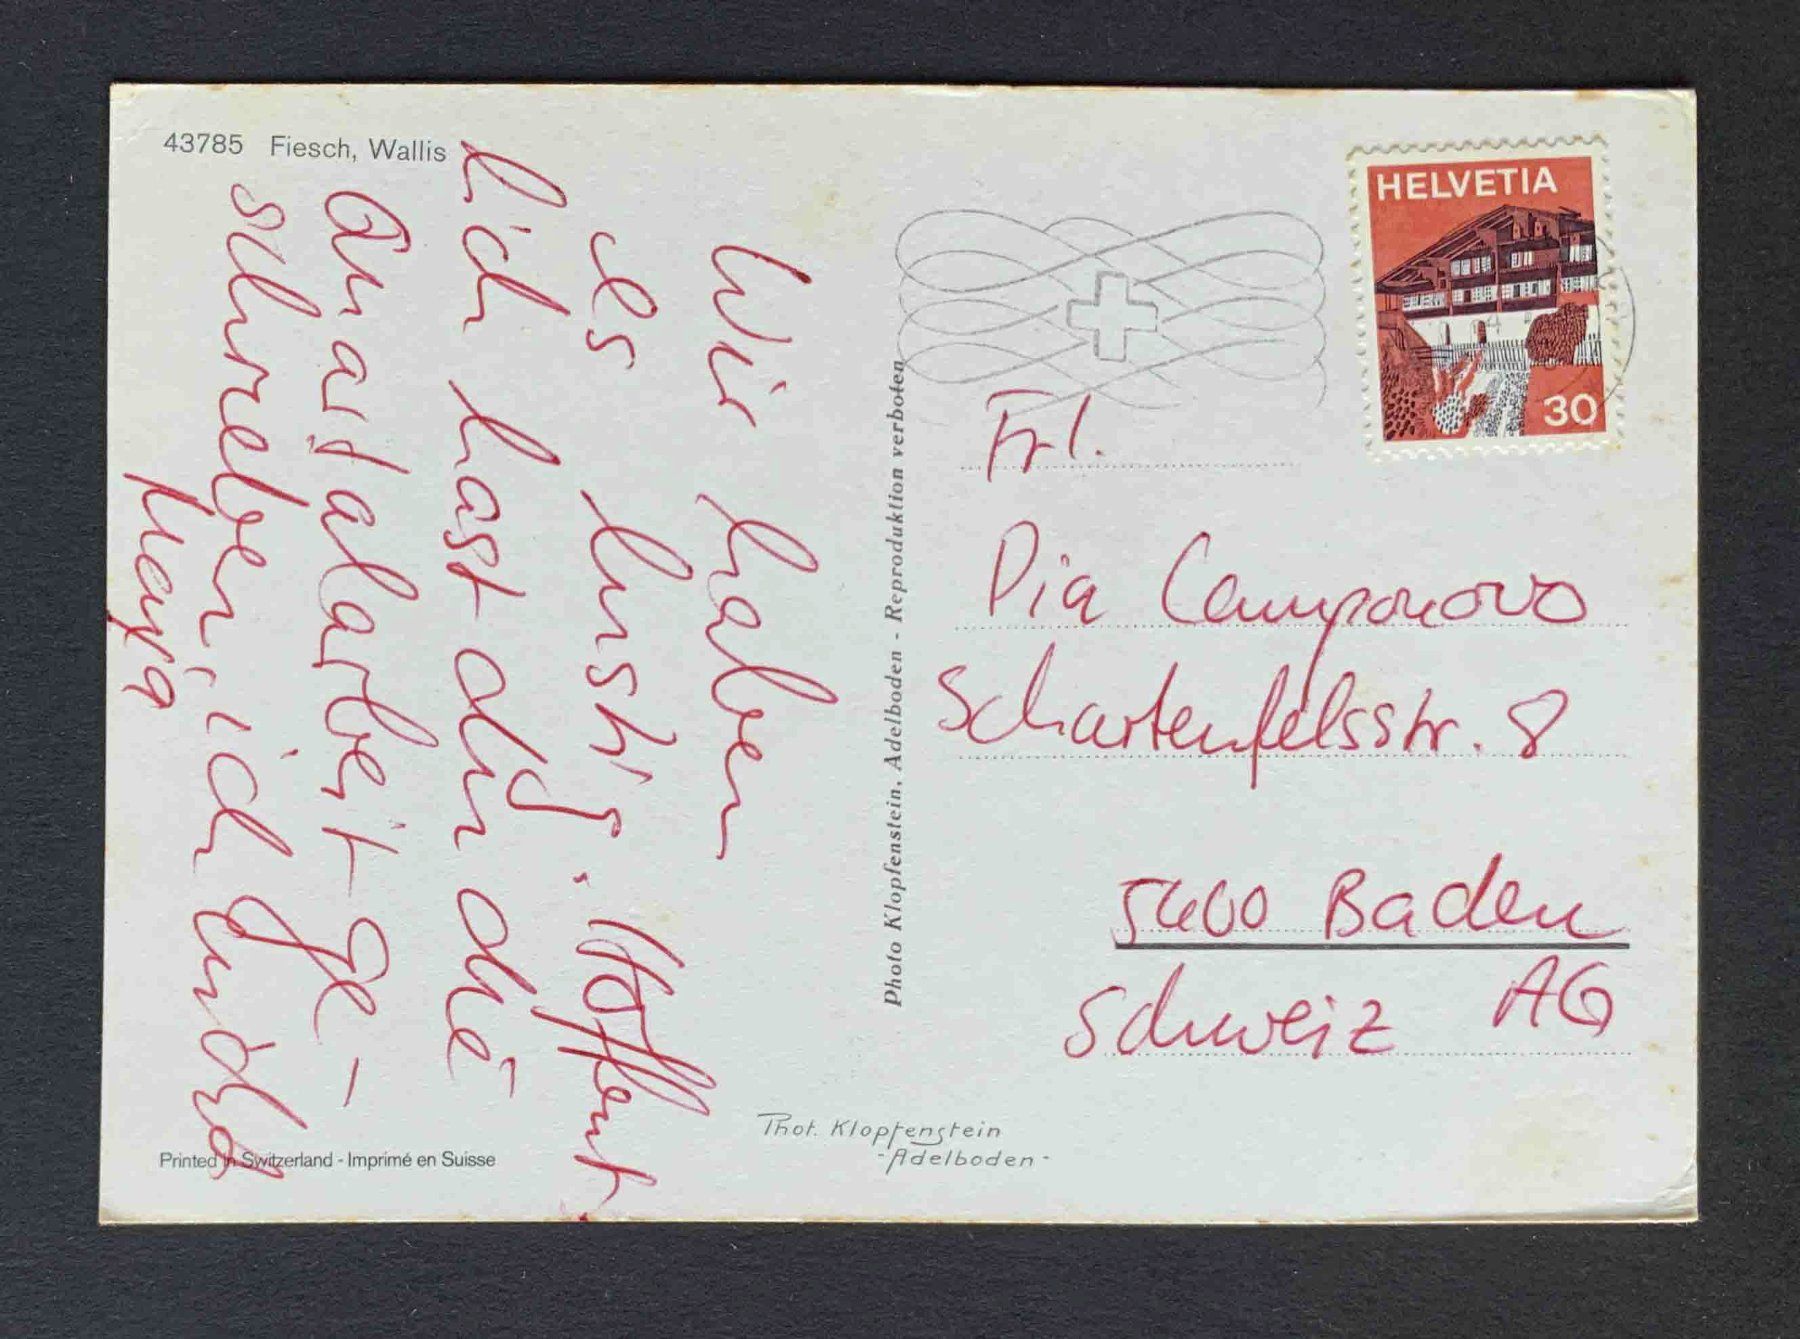 43785 Fiesch, Wallis
Wir haben
es lustig. Hoffent
lich hast du die
Quartalarbeit ge-
schrieben ich
Printed in Switzerland - Imprimé en Suisse
Photo Klopfenstein, Adelboden - Reproduktion verboten
Phot. Klopfenstein
- Adelboden -
HELVETIA
30
Frl.
Pia Camponovo
Schartenfelsstr. 8
5400 Baden
Schweiz AG